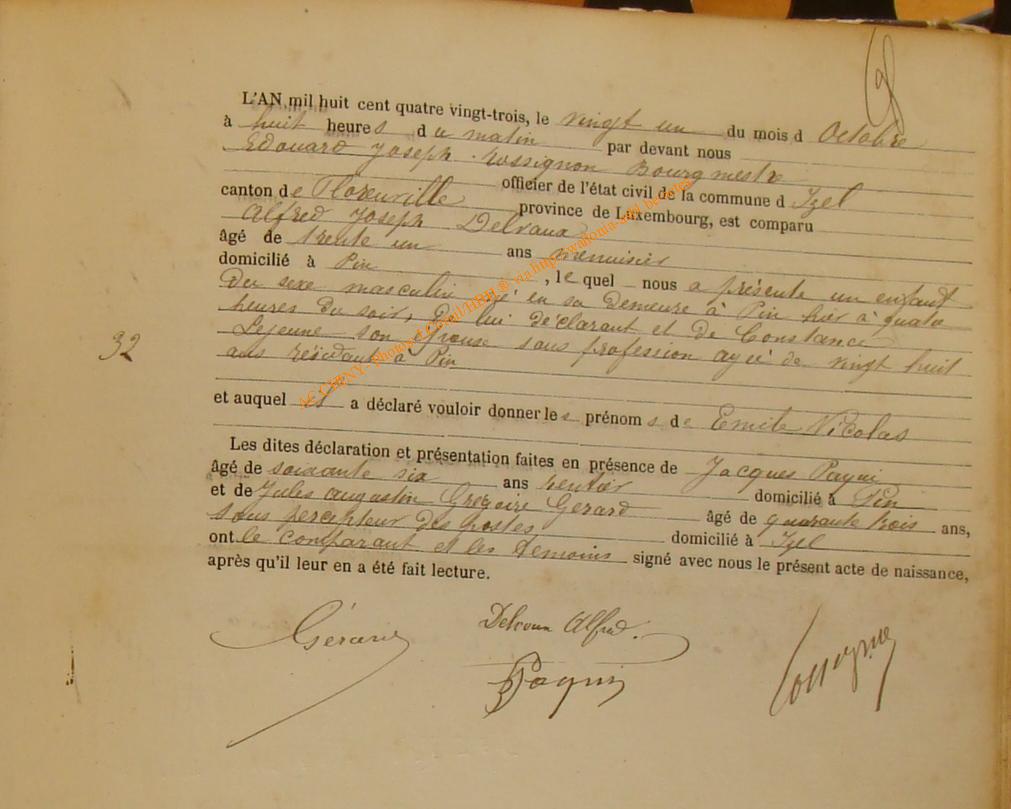 L'AN mil huit cent quatre vingt-trois, le vingt un du mois d Octobre
à huit heures du matin par devant nous
Edouard Joseph Rossignon Bourgmestre
officier de l'état civil de la commune d Izel
canton de Florenville province de Luxembourg, est comparu
Alfred Joseph Delvaux
âgé de trente un ans menuisier
domicilié à Pin, le quel nous a présenté un enfant
du sexe masculin né en sa demeure à Pin hier à quatre
heures du soir, de lui déclarant et de Constance
Lejeune son épouse sans profession agée de vingt huit
ans résidant à Pin
32
et auquel il a déclaré vouloir donner les prénoms de Emile Nicolas
Les dites déclaration et présentation faites en présence de Jacques
âgé de soixante six ans rentier domicilié à Pin
et de Jules augustin Grégoire Gerard âgé de quarante trois ans,
sous percepteur des postes domicilié à Izel
ont le comparant et les temoins signé avec nous le présent acte de naissance,
après qu'il leur en a été fait lecture.
Gérard
Delvaux Alfred.